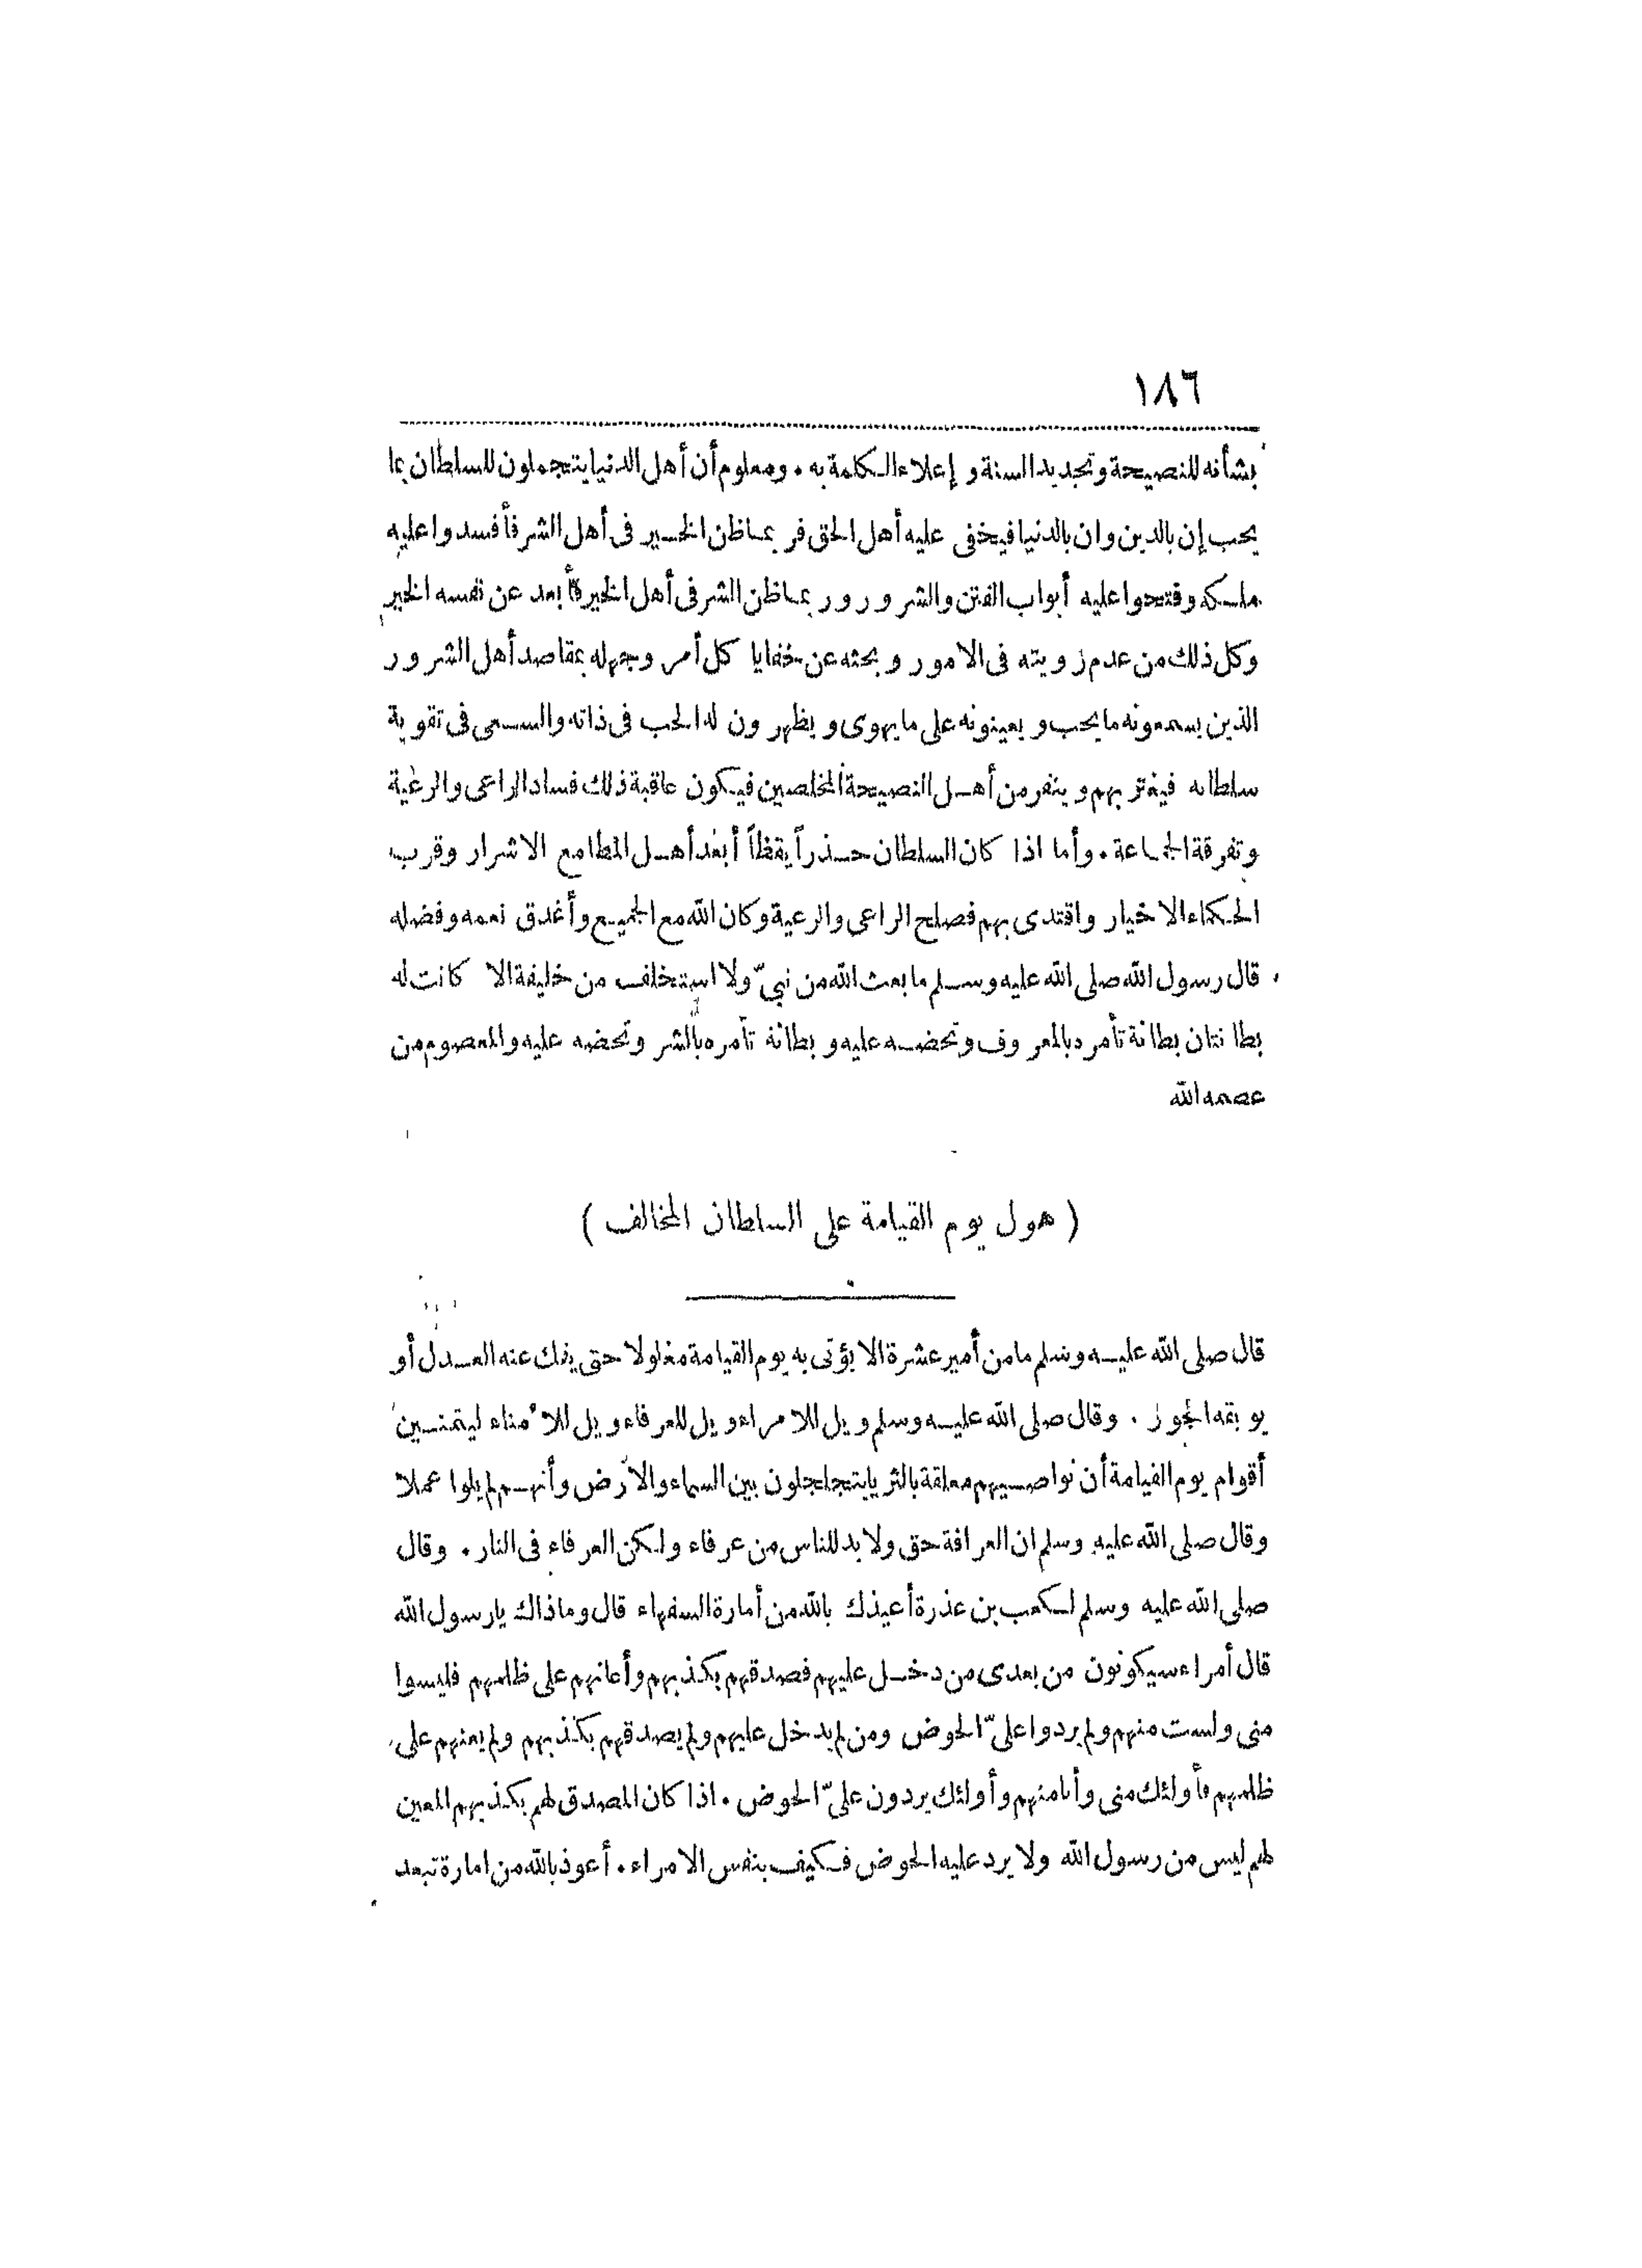 ١٨٦
بشأنه للنصيحة وتجديد السنة و إعلاء الكلمة به . ومعلوم أن أهل الدنيا يتجملون للسلطان بما
يحب إن بالدين وان بالدنيا فيخفى عليه أهل الحق فربما ظن الخير فى أهل الشر فأفسدوا عليه
ملكه وفتحوا عليه أبواب الفتن والشرور وربما ظن الشر فى أهل الخير فأبعد عن نفسه الخير
وكل ذلك من عدم رويته فى الامور وبحثه عن خفايا كل أمر وجهله بمقاصد أهل الشرور
الذين يسمعونه ما يحب ويعينونه على ما يهوى ويظهرون له الحب فى ذاته والسعى فى تقوية
سلطانه فيغتر بهم وينفر من أهل النصيحة المخلصين فيكون عاقبة ذلك فساد الراعى والرعية
وتفرقة الجماعة . وأما اذا كان السلطان حذراً يقظاً أبعد أهل المطامع الاشرار وقرب
الحكماء الاخيار واقتدى بهم فصلح الراعى والرعية وكان الله مع الجميع وأغدق نعمه وفضله
قال رسول الله صلى الله عليه وسلم ما بعث الله من نبىّ ولا استخلف من خليفة الا كانت له
بطانتان بطانة تأمره بالمعروف وتحضه عليه و بطانة تأمره بالشر وتحضه عليه والمعصوم من
عصمه الله
( هول يوم القيامة على السلطان المخالف )
قال صلى الله عليه وسلم ما من أمير عشرة الا يؤتى به يوم القيامة مغلولا حتى يفك عنه العدل أو
يوبقه الجور . وقال صلى الله عليه وسلم ويل للامراء ويل للعرفاء ويل للأمناء ليتمنين
أقوام يوم القيامة أن نواصيهم معلقة بالثريا يتجلجلون بين السماء والأرض وأنهم لم يلوا عملا
وقال صلى الله عليه وسلم ان العرافة حق ولا بد للناس من عرفاء ولكن العرفاء فى النار . وقال
صلى الله عليه وسلم لكعب بن عذرة أعيذك بالله من أمارة السفهاء قال وما ذاك يا رسول الله
قال أمراء سيكونون من بعدى من دخل عليهم فصدقهم بكذبهم وأعانهم على ظلمهم فليسوا
منى ولست منهم ولم يردوا علىّ الحوض ومن لم يدخل عليهم ولم يصدقهم بكذبهم ولم يعنهم على
ظلمهم فأولئك منى وأنا منهم وأولئك يردون علىّ الحوض . اذا كان المصدق لهم بكذبهم المعين
لهم ليس من رسول الله ولا يرد عليه الحوض فكيف بنفس الامراء . أعوذ بالله من امارة تبعد